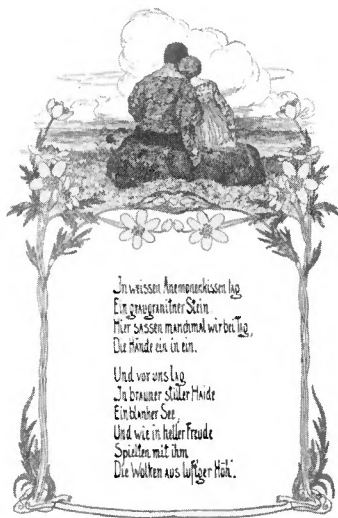 In weissen Anemonenkissen lag
Ein graugranitner Stein
Hier sassen manchmal wir bei Tag,
Die Hände ein in ein.
Und vor uns lag
In brauner stiller Haide
Ein blanker See,
Und wie in heller Freude
Spielten mit ihm
Die Wolken aus luft'ger Höh'.